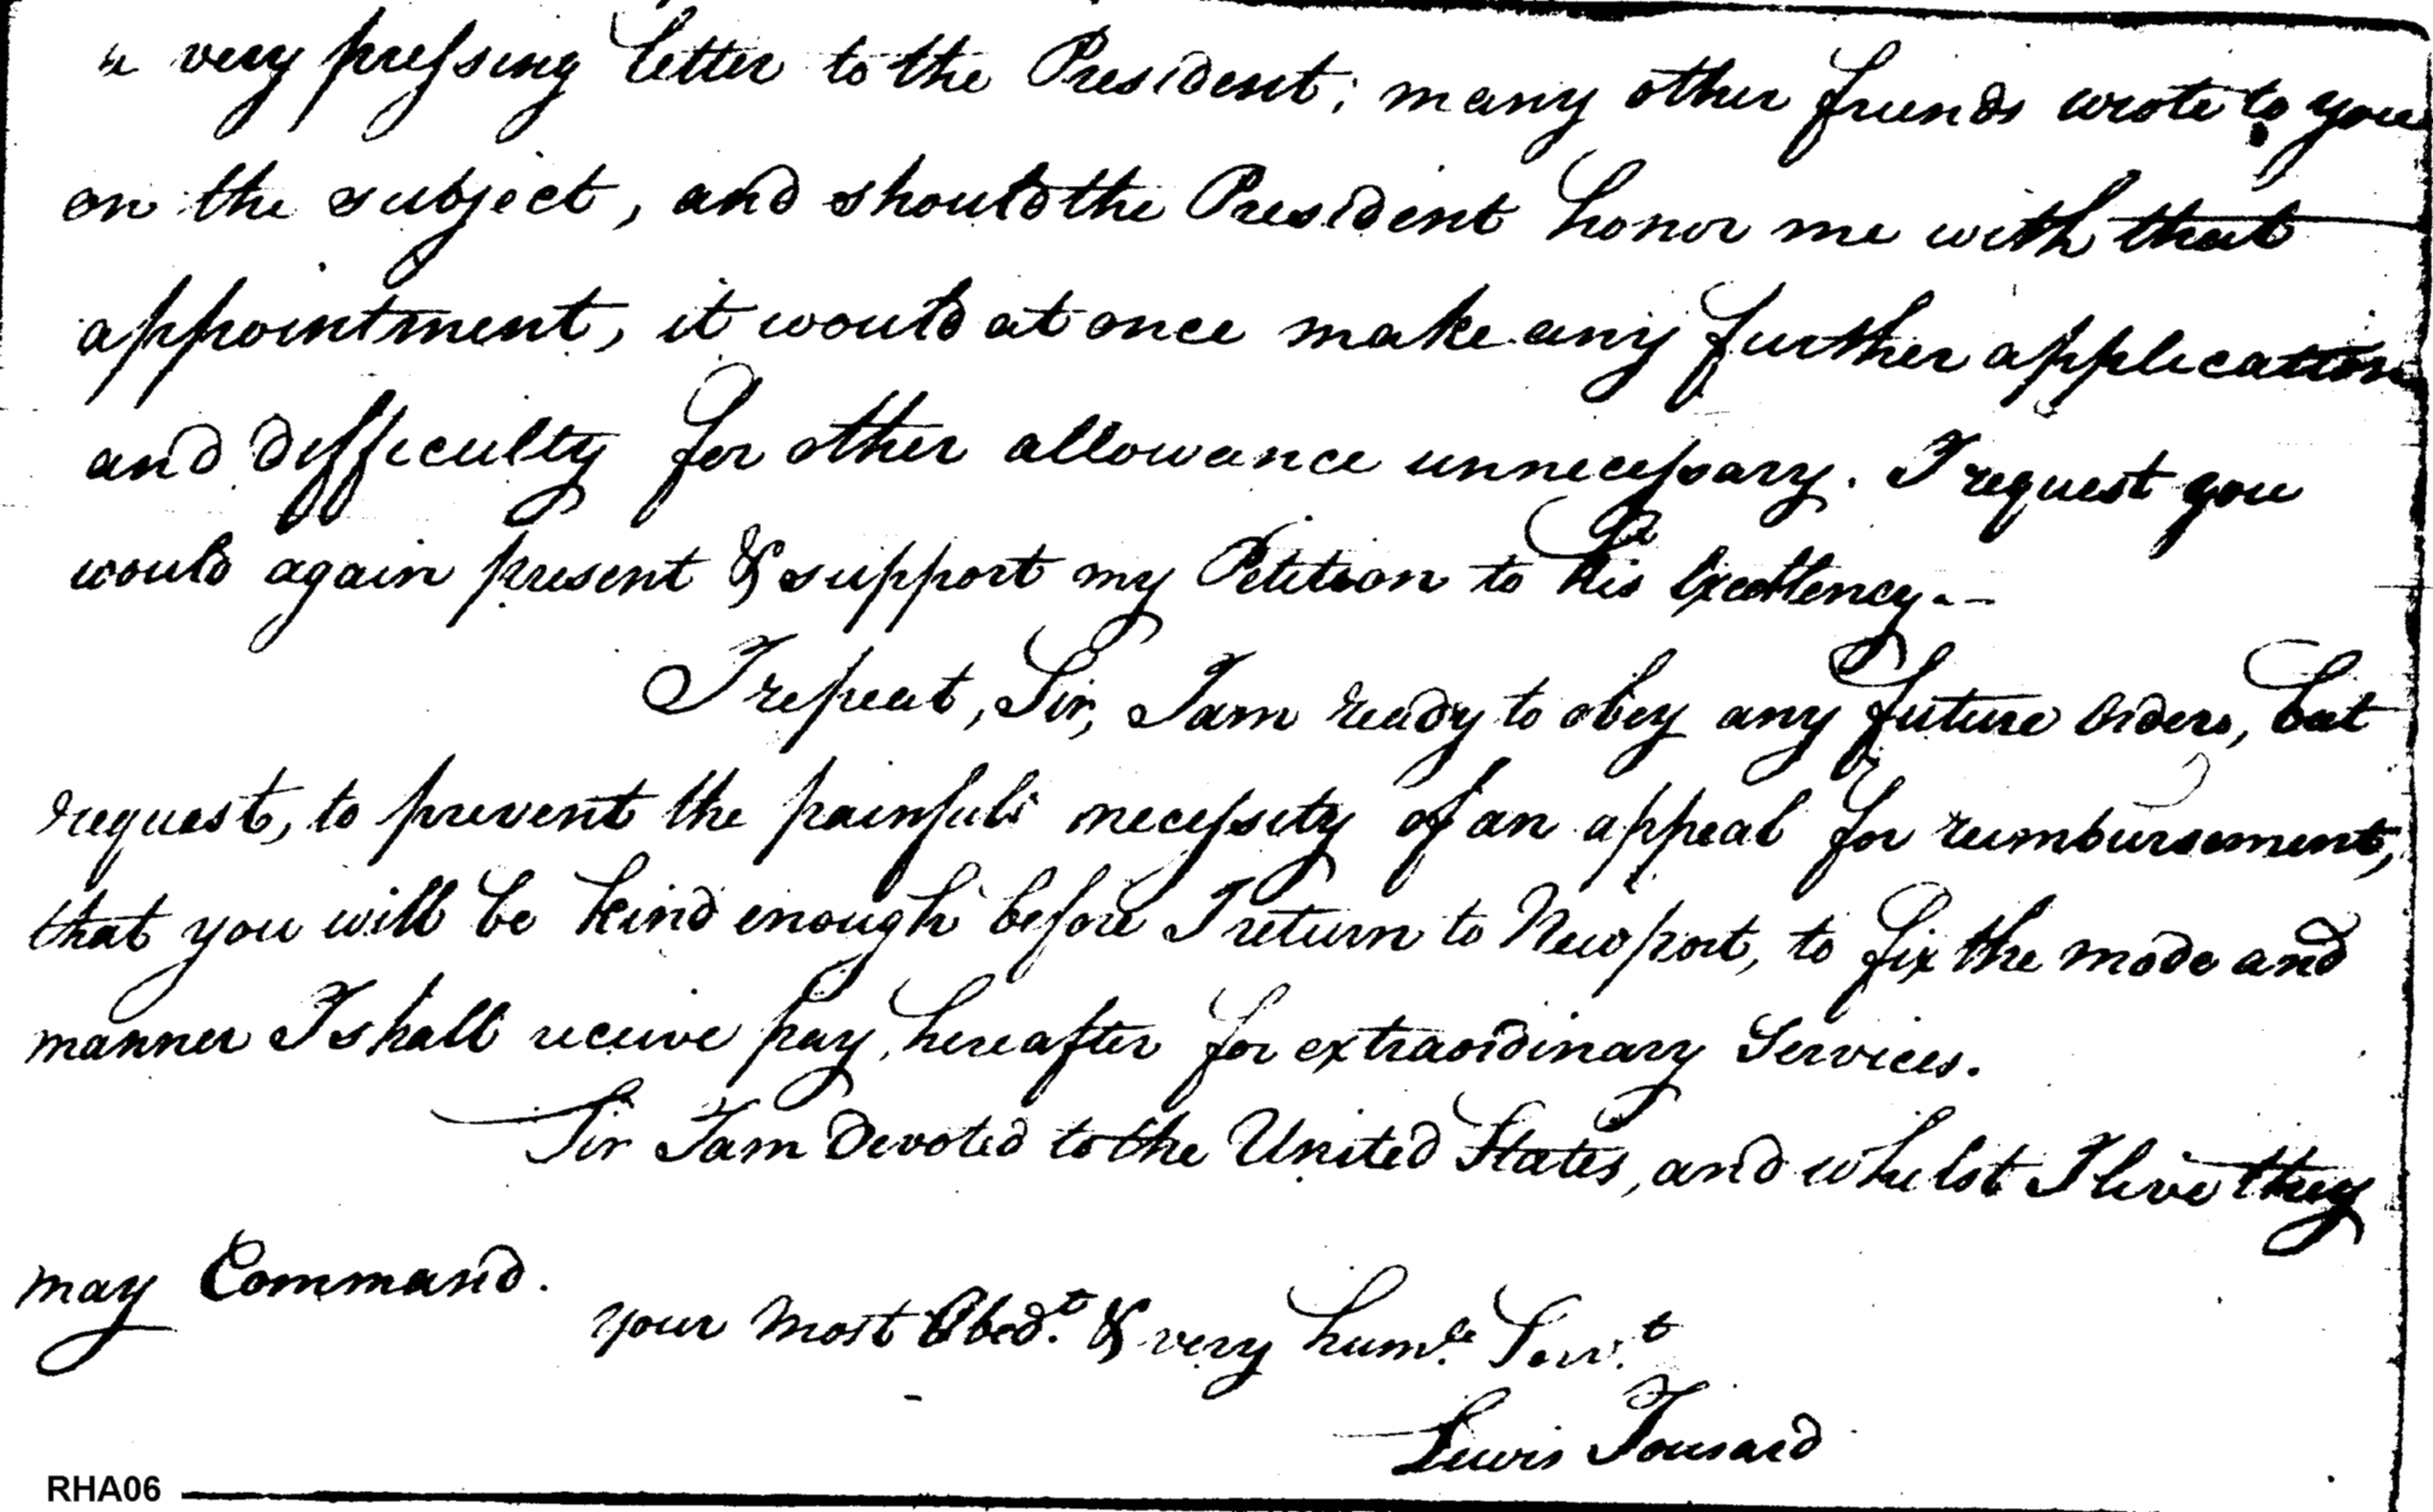 a very pressing letter to the President; many other friends wrote to you
on the subject, and should the President honor me with that
appointment, it would at once make any further application
and difficulty for other allowance unnecessary. I request you
would again present & support my Petition to his Excellency.--
I repeat, Sir, I am ready to obey any future orders, but
request, to prevent the painful necessity of an appeal for reimbursement,
that you will be kind enough before I return to Newport, to fix the mode and
manner I shall receive pay, hereafter for extraordinary Services.
Sir I am devoted to the United States, and whilst I live they
may Command.
Your Most Obedt. & very humle. Servt.
Lewis Tousard
RHA06